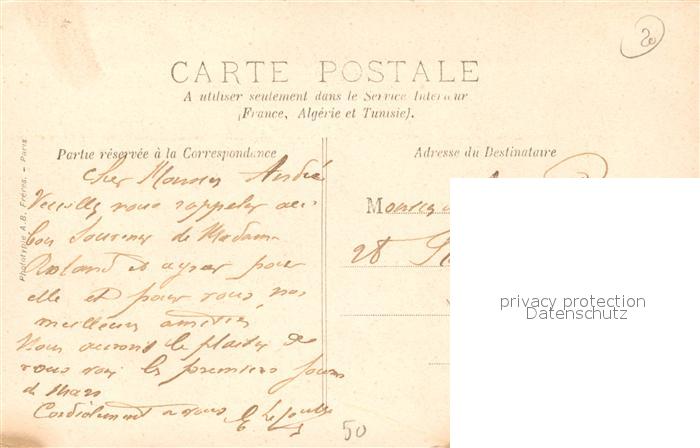 20
CARTE POSTALE
A utiliser seulement dans le Service Intérieur
(France, Algérie et Tunisie).
Partie réservée à la Correspondance
Adresse du Destinataire
Phototypie A.B. Frères. — Paris
Cher Monsieur André
Veuillez nous rappeler au
bon souvenir de Madame
Roland et agréer pour
elle et pour vous, nos
meilleures amitiés
Nous aurons le plaisir de
vous voir les premiers jours
de Mars
Cordialement à vous
28
50
privacy protection
Datenschutz